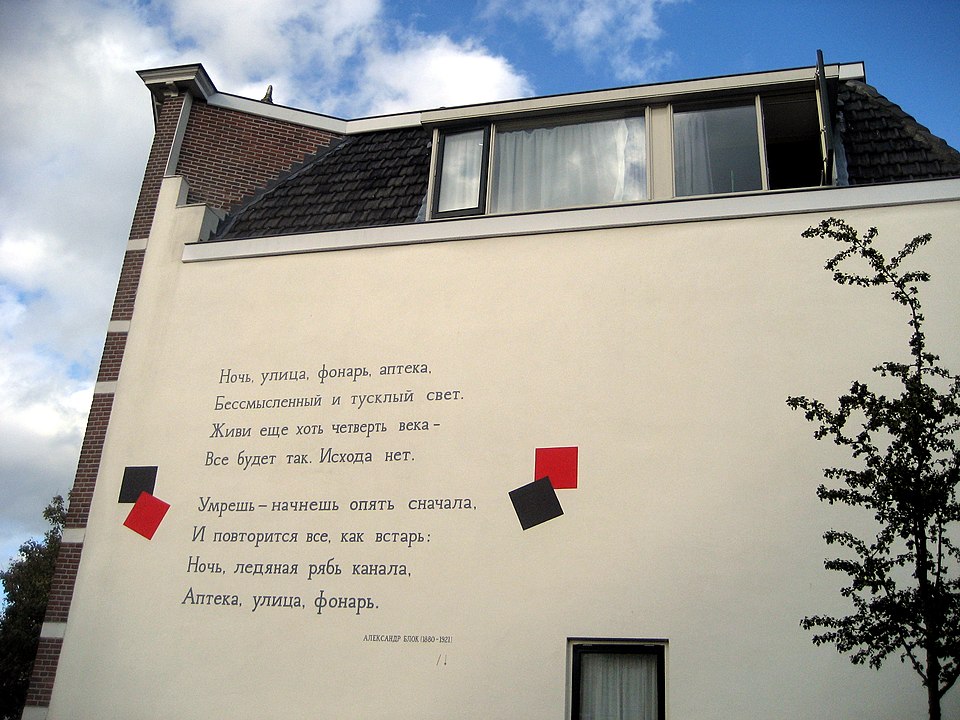 Ночь, улица, фонарь, аптека,
Бессмысленный и тусклый свет.
Живи еще хоть четверть века –
Все будет так. Исхода нет.
Умрешь – начнешь опять сначала,
И повторится все, как встарь:
Ночь, ледяная рябь канала,
Аптека, улица, фонарь.
АЛЕКСАНДР БЛОК (1880-1921)